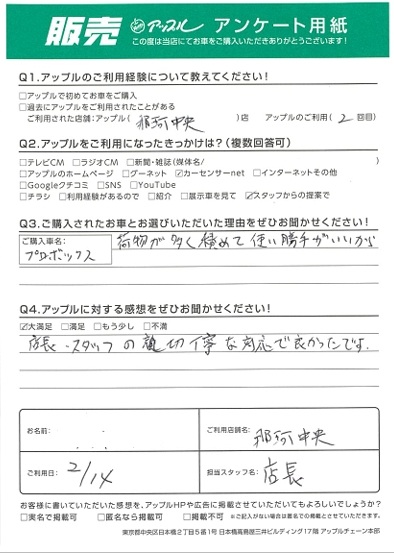 販売 アップル アンケート用紙
この度は当店にてお車をご購入いただきありがとうございます!
Q1.アップルのご利用経験について教えてください!
□アップルで初めてお車をご購入
□過去にアップルをご利用されたことがある
ご利用された店舗:アップル( 那珂中央 )店 アップルのご利用( 2 回目)
Q2.アップルをご利用になったきっかけは?(複数回答可)
□テレビCM □ラジオCM □新聞・雑誌(媒体名/ )
□アップルのホームページ □グーネット ☑カーセンサーnet □インターネットその他
□Googleクチコミ □SNS □YouTube
□チラシ □利用経験があるので □紹介 □展示車を見て ☑スタッフからの提案で
Q3.ご購入されたお車とお選びいただいた理由をぜひお聞かせください!
ご購入車名: 荷物が多く積めて使い勝手がいいから
プロボックス
Q4.アップルに対する感想をぜひお聞かせください!
☑大満足 □満足 □もう少し □不満
店長・スタッフの親切丁寧な対応で良かったです.
お名前: ご利用店舗名: 那珂中央
ご利用日: 2/14 担当スタッフ名: 店長
お客様に書いていただいた感想を、アップルHPや広告に掲載させていただいてもよろしいでしょうか?
□実名で掲載可 □匿名なら掲載可 □掲載不可 ※ご記入がない場合は匿名での掲載とさせていただきます。
東京都中央区日本橋2丁目5番1号 日本橋髙島屋三井ビルディング17階 アップルチェーン本部